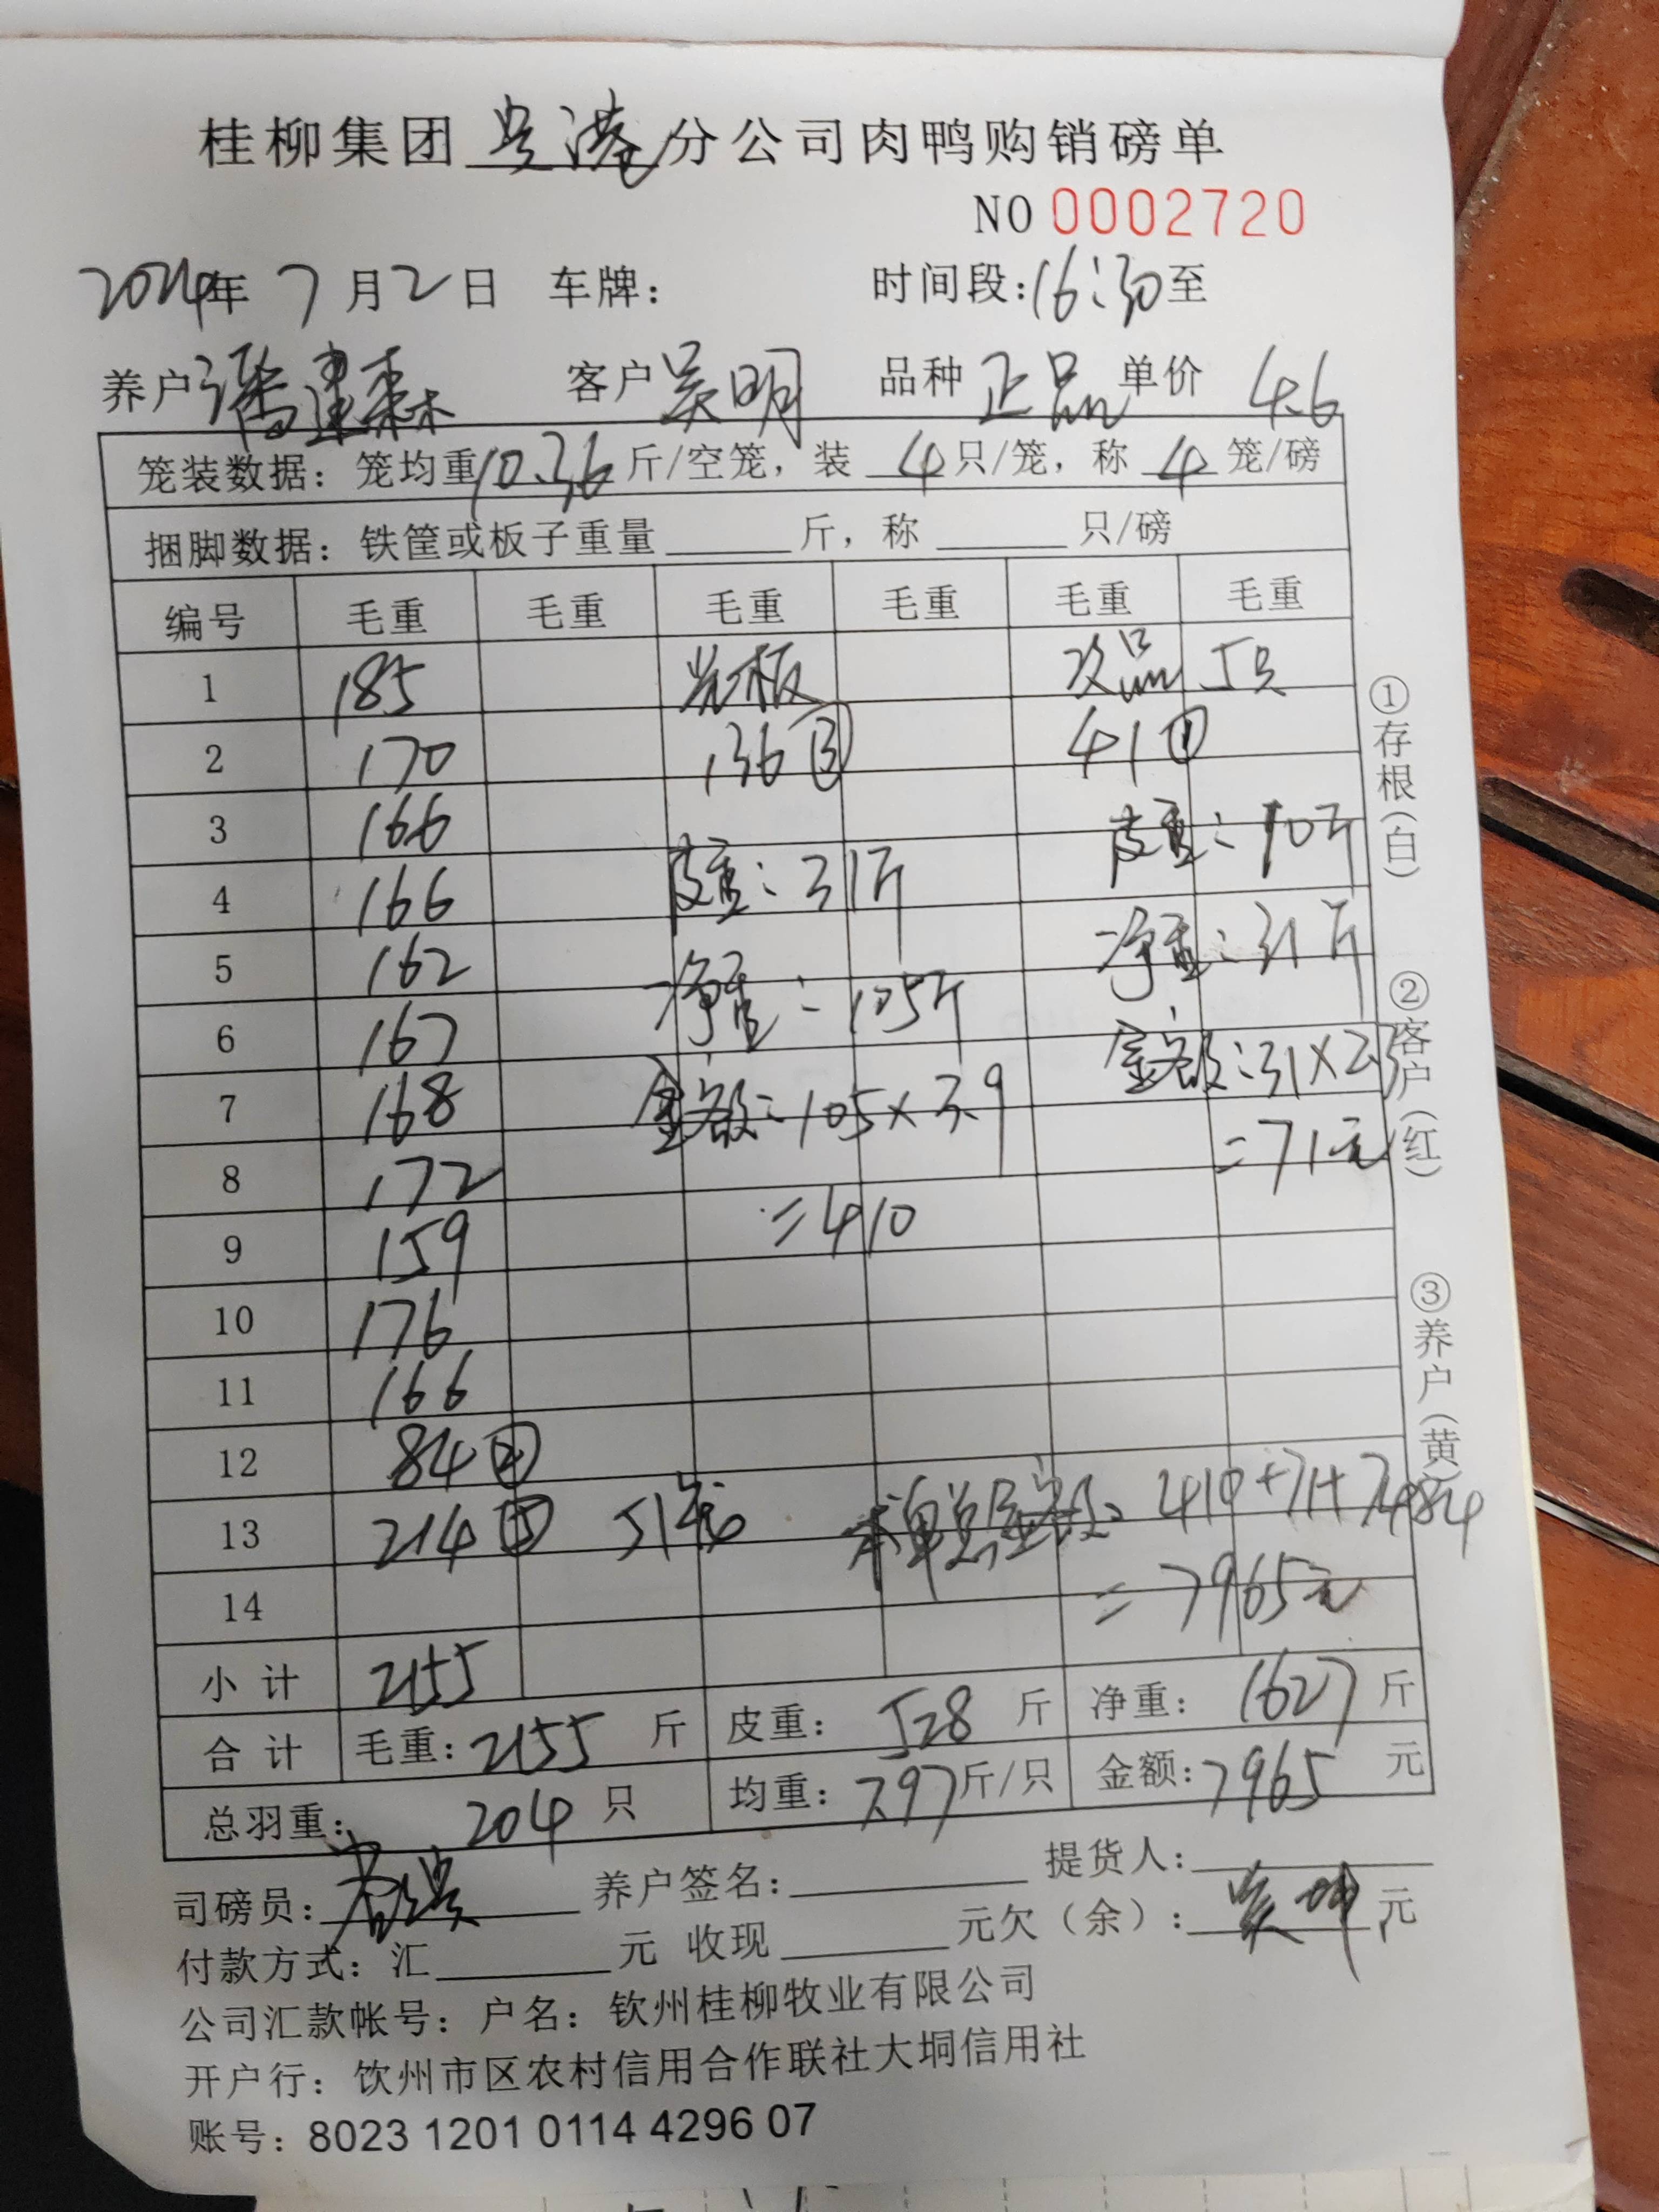 桂柳集团贵港分公司肉鸭购销磅单
NO 0002720
2024年 7月2日 车牌： 时间段：16:30至
养户潘建森 客户吴明 品种正品 单价 4.6
笼装数据：笼均重10.36斤/空笼，装 4只/笼，称 4 笼/磅
捆脚数据：铁筐或板子重量 斤，称 只/磅
编号 毛重 毛重 毛重 毛重 毛重 毛重
1 185 光板 次品 5只
2 170 136③ 41①
3 166 皮重：10斤
4 166 皮重：31斤 净重：31斤
5 162 净重：105斤
6 167 金额：31×2.3
7 168 金额：105×3.9 =71元
8 172 =410
9 159
10 176
11 166
12 84②
13 214⑤ 51笼 本单总金额：410+71+7484
14 =7965元
小计 2155
合计 毛重：2155 斤 皮重：528 斤 净重：1627斤
总羽重：204 只 均重：7.97斤/只 金额：7965 元
司磅员： 养户签名： 提货人：
付款方式：汇 元 收现 元欠（余）：吴坤 元
公司汇款帐号：户名：钦州桂柳牧业有限公司
开户行：饮州市区农村信用合作联社大垌信用社
账号：8023 1201 0114 4296 07
①存根（白）
②客户（红）
③养户（黄）